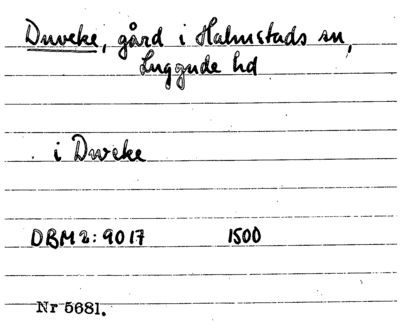 Duveke, gård i Halmstads sn,
Luggude hd
i Dweke
DBM 2: 9017 1500
Nr 5681.